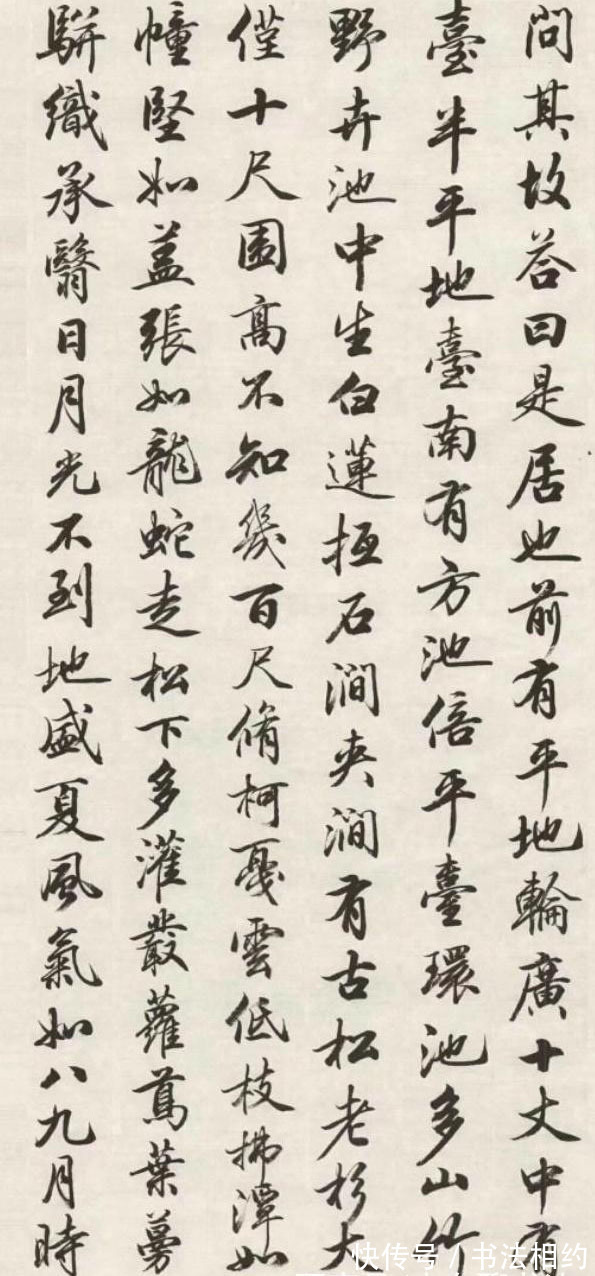 問其故荅曰是居也前有平地輪廣十丈中有
臺半平地臺南有方池倍平臺環池多山竹
野卉池中生白蓮抵石澗夾澗有古松老杉大
僅十尺圍高不知幾百尺脩柯戛雲低枝拂潭如
幢堅如蓋張如龍蛇走松下多灌叢蘿蔦葉蔓
駢織承翳日月光不到地盛夏風氣如八九月時
快传号 / 书法相约